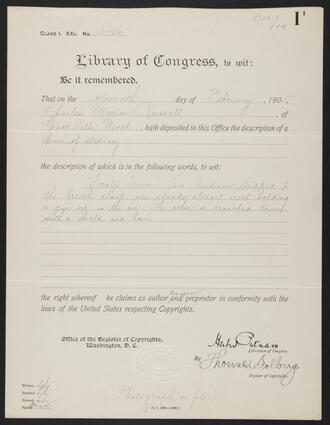 I¹
CLASS I. XXc. No.
Library of Congress, to wit:
Be it remembered,
That on the eleventh day of February, 190
Charles Marion Russell, of
Great Falls Mont., hath deposited in this Office the description of a
piece of statuary
the description of which is in the following words, to wit:
Scalp Dance. Two Indians stripped to
the breech clout, one stands almost erect holding
a gun up in the air. The other is crouched down
with a shield and bow.
the right whereof he claims as author and proprietor in conformity with the
laws of the United States respecting Copyrights.
Office of the Register of Copyrights,
Washington, D. C.
Herbert Putnam
Librarian of Congress.
By Thorvald Solberg
Register of Copyrights.
Written
Revised
Entered
Mailed
(Photograph on file)